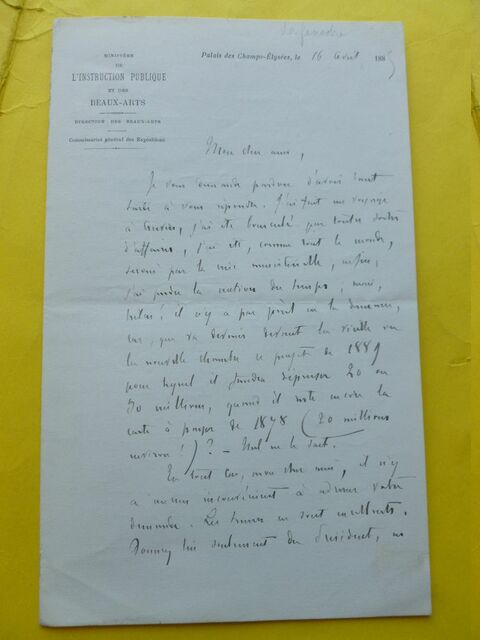 Lafenestre
MINISTÈRE
DE
L'INSTRUCTION PUBLIQUE
ET DES
BEAUX-ARTS
DIRECTION DES BEAUX-ARTS
Commissariat général des Expositions
Palais des Champs-Élysées, le 16 avril 1885
Mon cher ami,
Je vous demande pardon d'avoir tant
tardé à vous répondre. J'ai fait un voyage
à , j'ai été bousculé par toutes sortes
d'affaires, j'ai été, comme tout le monde,
par la crise ministérielle, enfin,
j'ai perdu la notion du temps; mais,
hélas! il n'y a pas péril en la demeure,
car, que va devenir devant la vieille ou
la nouvelle chambre ce projet de 1889
pour lequel il faudra dépenser 20 ou
30 millions, quand il reste encore la
carte à payer de 1878 (20 millions
environ!)? — Nul ne le sait.
En tout cas, mon cher ami, il n'y
a aucun inconvénient à adresser votre
demande. Les termes en sont excellents.
seulement du Président, ou